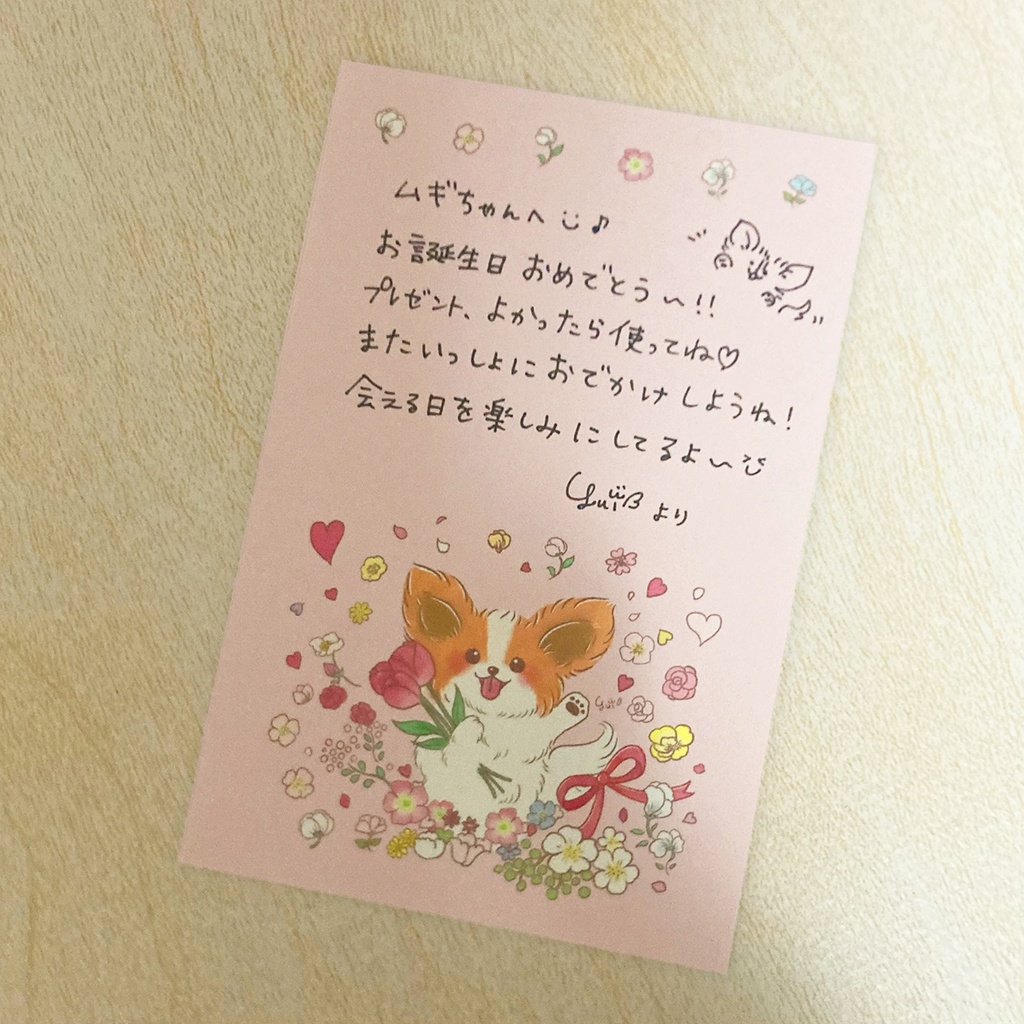 ムギちゃんへ
お誕生日 おめでとう〜!!
プレゼント、よかったら使ってね♡
またいっしょに おでかけ しようね!
会える日を楽しみ にしてるよ〜
より